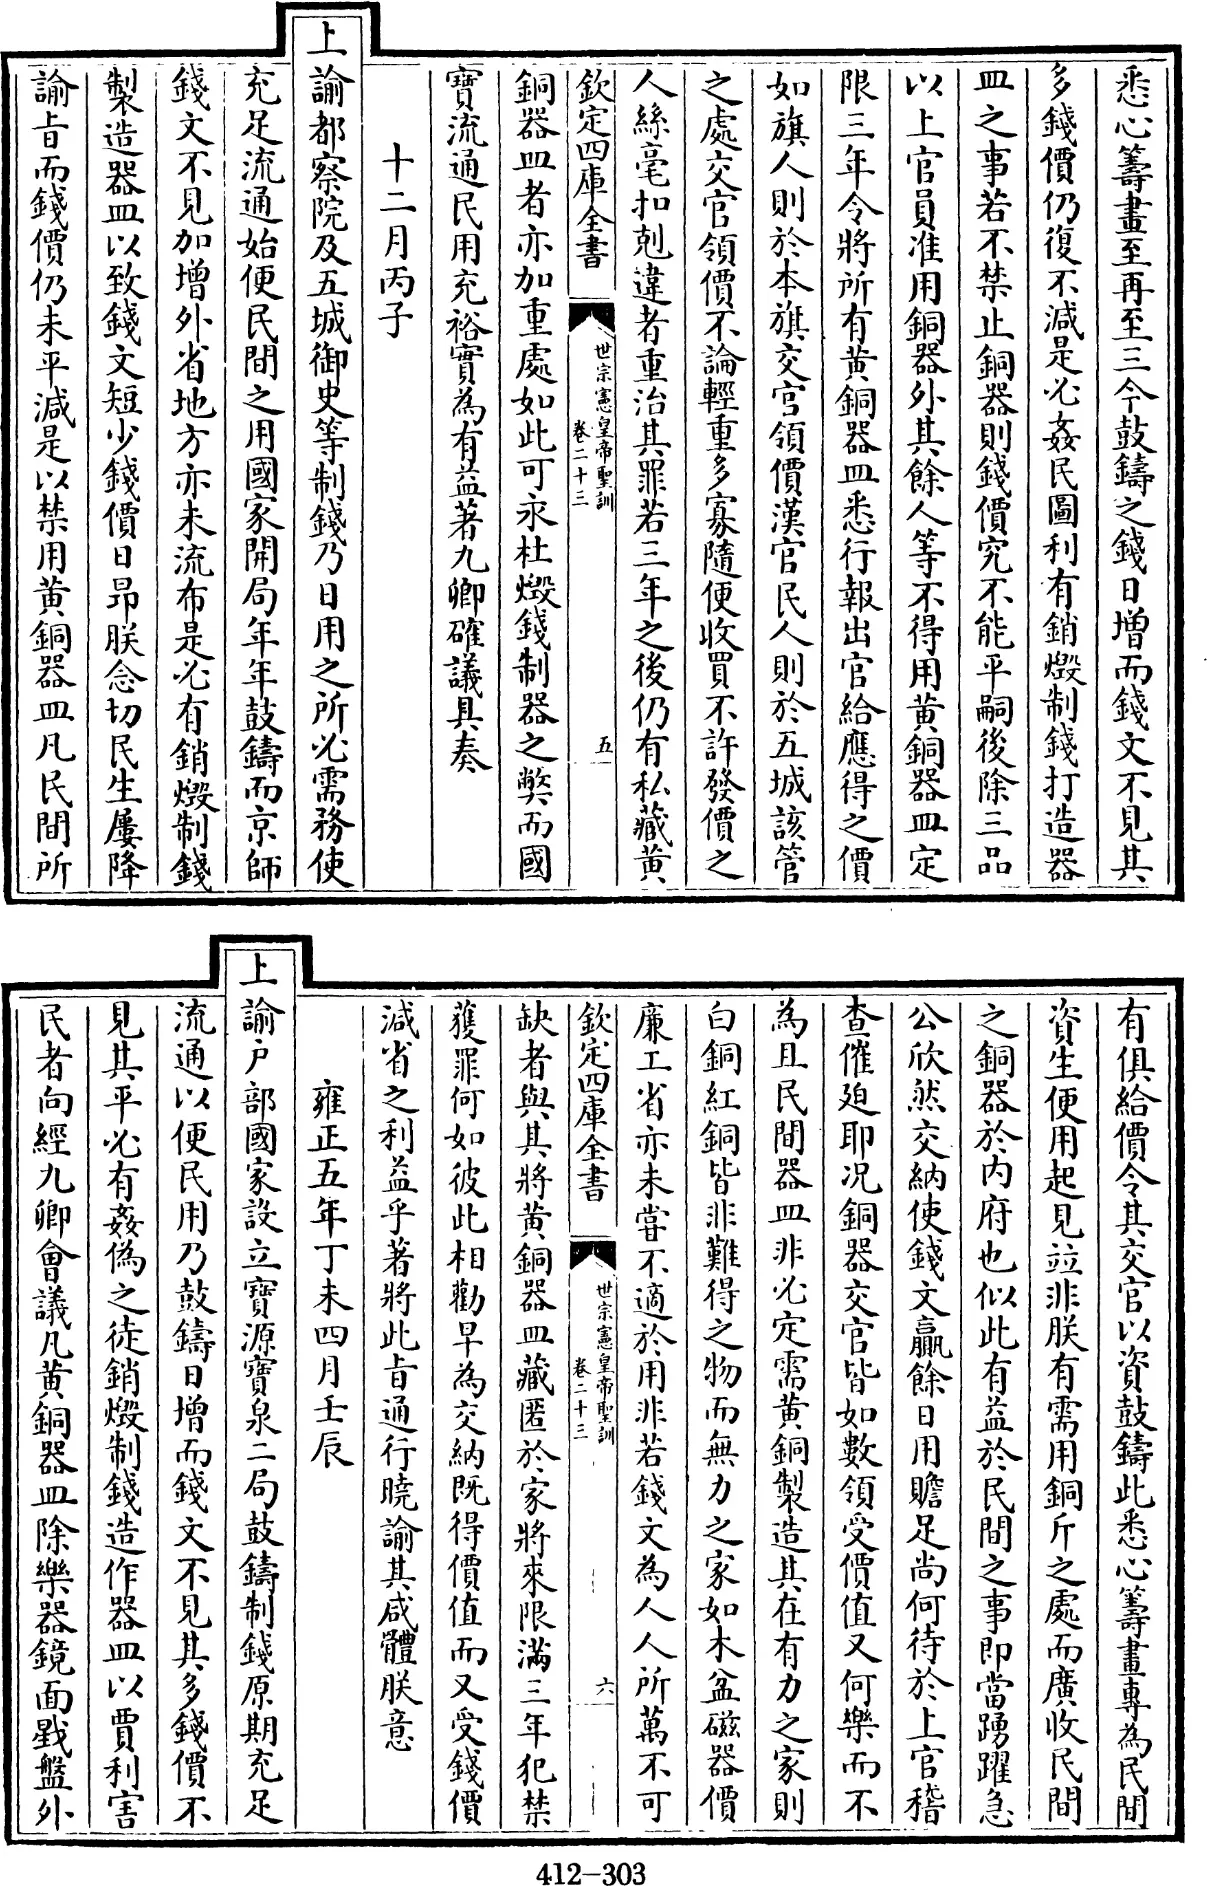 悉心籌畫至再至三今鼓鑄之錢日増而錢文不見其
多錢價仍復不減是必姦民圖利有銷燬制錢打造器
皿之事若不禁止銅器則錢價究不能平嗣後除三品
以上官員准用銅器外其餘人等不得用黄銅器皿定
限三年令將所有黄銅器皿悉行報出官給應得之價
如旗人則於本旗交官領價漢官民人則於五城該管
之處交官領價不論輕重多寡隨便收買不許發價之
人絲毫扣剋違者重治其罪若三年之後仍有私藏黄
欽定四庫全書
世宗憲皇帝聖訓
卷二十三
五
銅器皿者亦加重處如此可永杜燬錢制器之弊而國
寶流通民用充裕實為有益著九卿確議具奏
十二月丙子
上諭都察院及五城御史等制錢乃日用之所必需務使
充足流通始便民間之用國家開局年年鼓鑄而京師
錢文不見加增外省地方亦未流布是必有銷燬制錢
製造器皿以致錢文短少錢價日昂朕念切民生屢降
諭旨而錢價仍未平減是以禁用黄銅器皿凡民間所
有俱給價令其交官以資鼓鑄此悉心籌畫專為民間
資生便用起見竝非朕有需用銅斤之處而廣收民間
之銅器於内府也似此有益於民間之事即當踴躍急
公欣然交納使錢文贏餘日用贍足尚何待於上官稽
查催廹耶况銅器交官皆如數領受價值又何樂而不
為且民間器皿非必定需黄銅製造其在有力之家則
白銅紅銅皆非難得之物而無力之家如木盆磁器價
廉工省亦未嘗不適於用非若錢文為人人所萬不可
欽定四庫全書
世宗憲皇帝聖訓
卷二十三
六
缺者與其將黄銅器皿藏匿於家將來限滿三年犯禁
獲罪何如彼此相勸早為交納既得價值而又受錢價
減省之利益乎著將此旨通行曉諭其咸體朕意
雍正五年丁未四月壬辰
上諭户部國家設立寳源寳泉二局鼓鑄制錢原期充足
流通以便民用乃鼓鑄日增而錢文不見其多錢價不
見其平必有姦偽之徒銷燬制錢造作器皿以賈利害
民者向經九卿會議凡黄銅器皿除樂器鏡面戥盤外
412-303